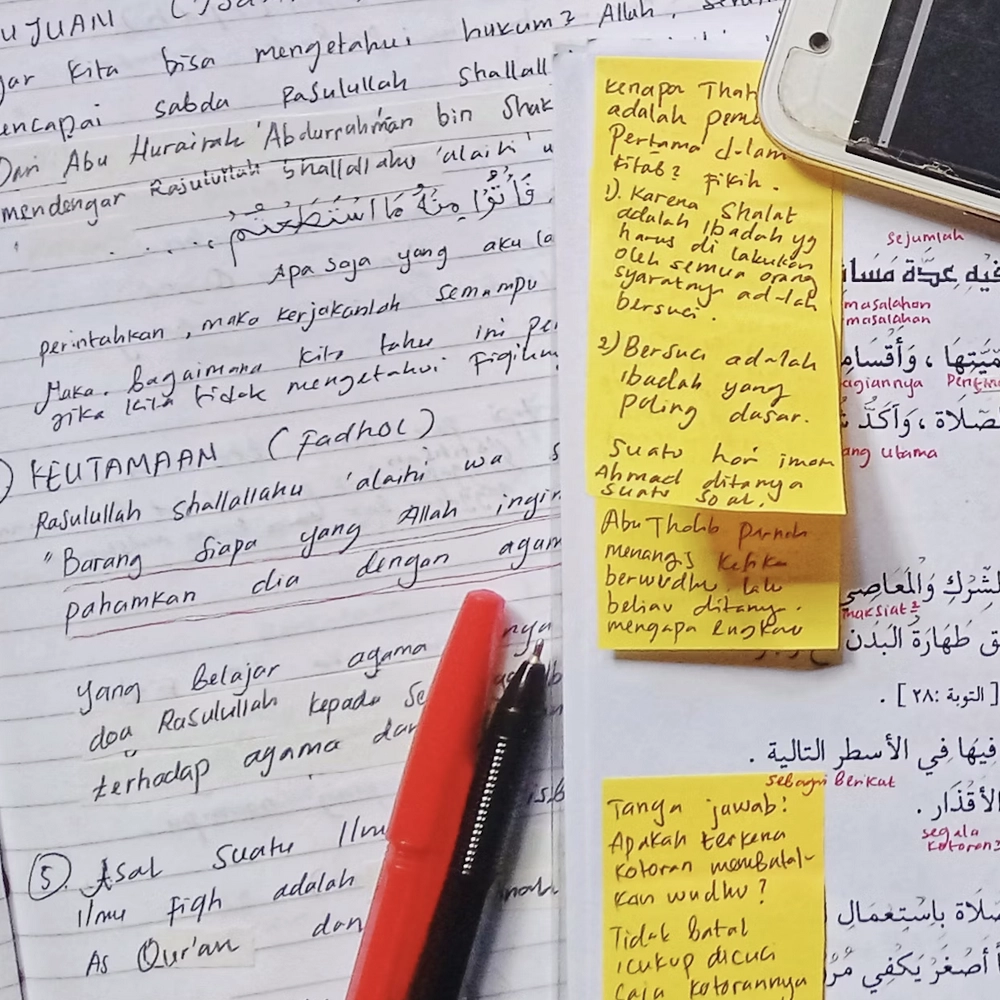 UJUAN
kita bisa mengetahui hukum? Allah,
encapai sabda Rasulullah shallall
Dari Abu Hurairah 'Abdurrahman bin Shak
mendengar Rasulullah Shallallahu 'alaihi w
فَأْتُوا مِنْهُ مَا اسْتَطَعْتُمْ
Apa saja yang aku la
perintahkan, maka kerjakanlah semampu
Maka. bagaimana kita tahu ini per
jika kita tidak mengetahui Fiqihnya
KEUTAMAAN (Fadhol)
Rasulullah shallallahu 'alaihi wa s
"Barang siapa yang Allah ingin
pahamkan dia dengan agam
yang Belajar agama nya
doa Rasulullah kepada Se
terhadap agama dan
5. Asal Suatu Ilmu
Ilmu Fiqh adalah
As Qur'an dan
Kenapa Thah
adalah pemb
Pertama d-lam
kitab? Fikih.
1). Karena Shalat
adalah Ibadah yg
harus di lakukan
oleh semua orang
syaratnya ad-lah
bersuci.
2) Bersuci ad-lah
Ibadah yang
paling dasar.
Suatu hari imam
Ahmad ditanya
suatu soal.
Abu Tholib pernah
menangis ketika
berwudhu lalu
beliau ditanya.
mengapa Engkau
Tanya jawab:
Apakah terkena
kotoran membatal-
kan wudhu?
Tidak Batal
cukup dicuci
saja kotorannya
sejumlah
فيه عدة مسا
masalahan
masalahan
ميتها ، وأقسام
agiannya
الصلاة ، وآكد
ang utama
الشرك والمعاصي
maksiat²
طهارة البدن
[التوبة :٢٨] .
فيها في الأسطر التالية .
sebagai berikut
الأقذار .
segala
kotoran²
صلاة باستعمال
أصغر يكفي